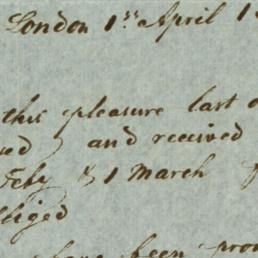 London 1st April 1
this pleasure last
and received
Feby & 1 March
bliged
have been pro